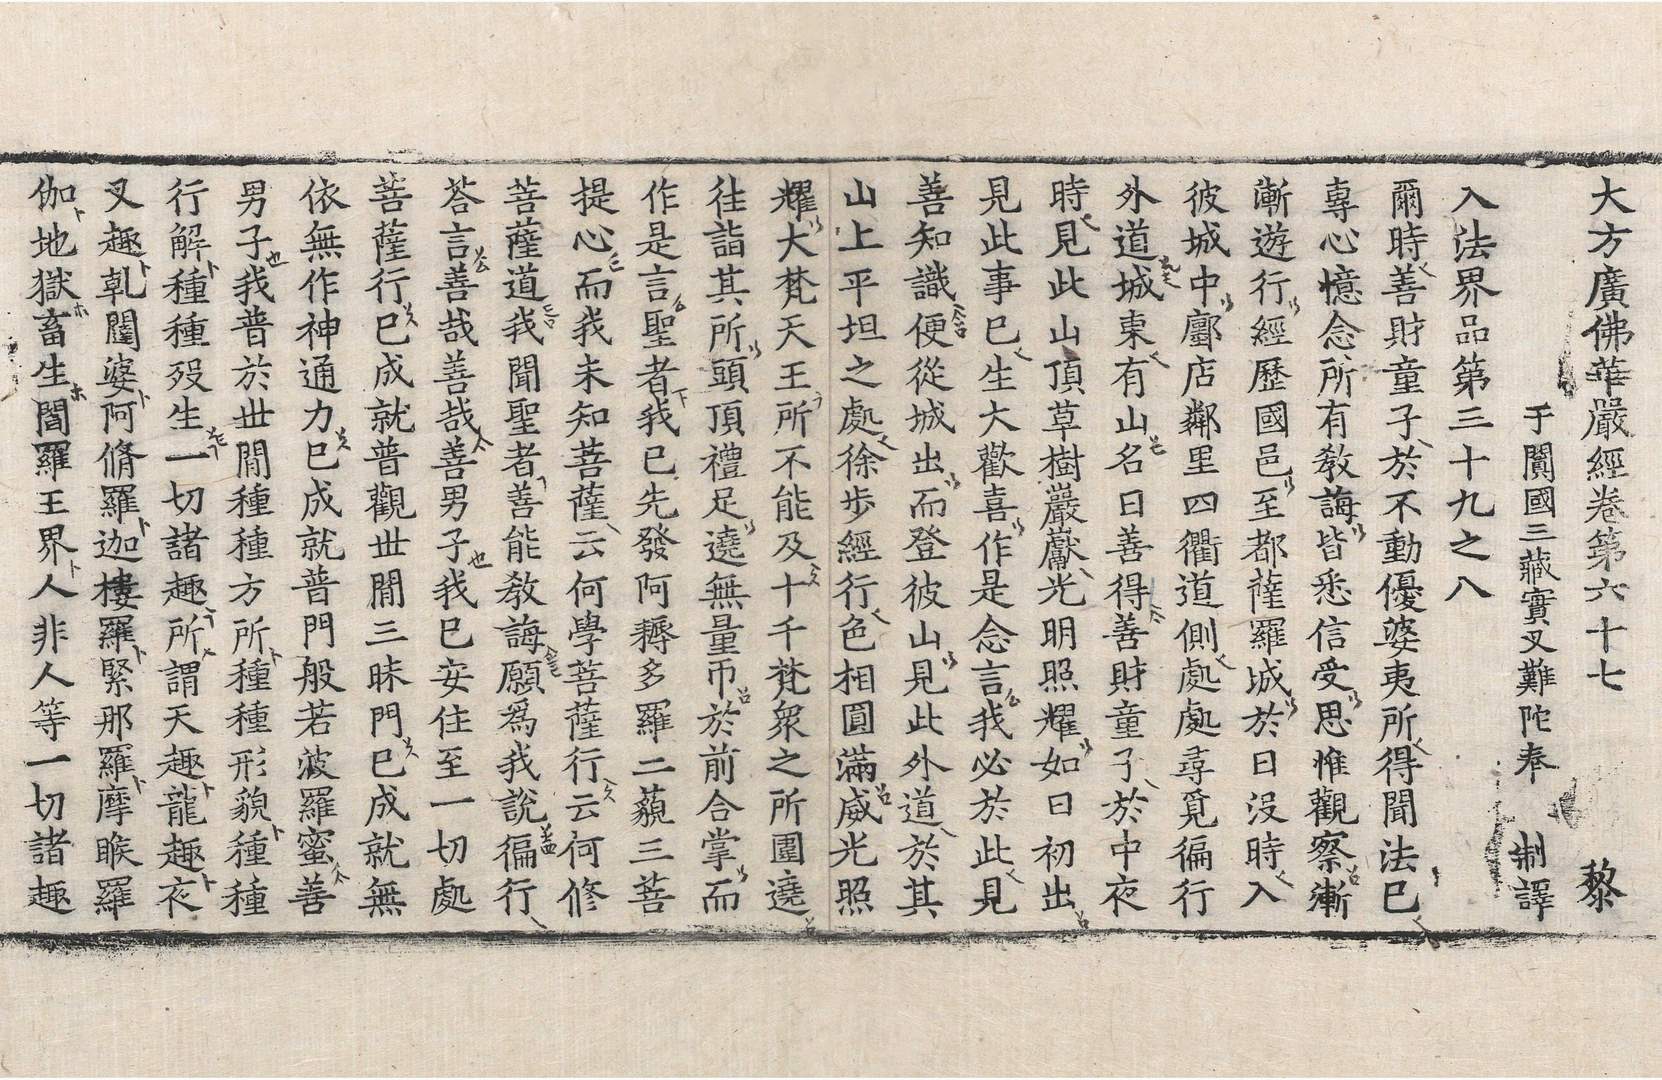 大方廣佛華嚴經卷第六十七 黎
于闐國三藏實叉難陀奉 制譯
入法界品第三十九之八
爾時善財童子於不動優婆夷所得聞法已
專心憶念所有教誨皆悉信受思惟觀察漸
漸遊行經歷國邑至都薩羅城於日沒時入
彼城中廛店鄰里四衢道側處處尋覓徧行
外道城東有山名曰善得善財童子於中夜
時見此山頂草樹巖巘光明照耀如日初出
見此事已生大歡喜作是念言我必於此見
善知識便從城出而登彼山見此外道於其
山上平坦之處徐步經行色相圓滿威光照
耀大梵天王所不能及十千梵衆之所圍遶
往詣其所頭頂禮足遶無量帀於前合掌而
作是言聖者我已先發阿耨多羅三藐三菩
提心而我未知菩薩云何學菩薩行云何修
菩薩道我聞聖者善能教誨願爲我說徧行
荅言善哉善哉善男子我已安住至一切處
菩薩行已成就普觀世間三昧門已成就無
依無作神通力已成就普門般若波羅蜜善
男子我普於世間種種方所種種形貌種種
行解種種歿生一切諸趣所謂天趣龍趣夜
叉趣乹闥婆阿脩羅迦樓羅緊那羅摩睺羅
伽地獄畜生閻羅王界人非人等一切諸趣